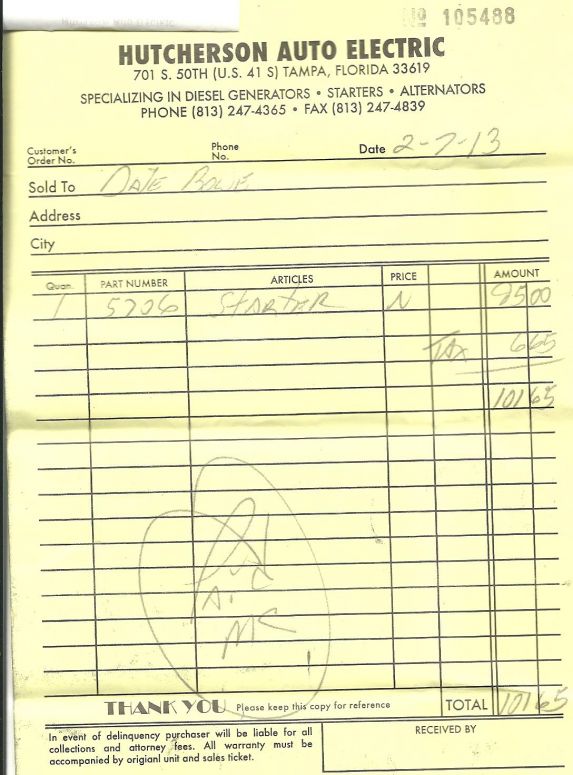 № 105488
HUTCHERSON AUTO ELECTRIC
701 S. 50TH (U.S. 41 S) TAMPA, FLORIDA 33619
SPECIALIZING IN DIESEL GENERATORS • STARTERS • ALTERNATORS
PHONE (813) 247-4365 • FAX (813) 247-4839
Customer's Order No. Phone No. Date 2-7-13
Sold To
Address
City
Quan. PART NUMBER ARTICLES PRICE AMOUNT
1 5706 STARTER N 9500
TAX 665
10165
PAID
MC
THANK YOU Please keep this copy for reference TOTAL 10165
In event of delinquency purchaser will be liable for all
collections and attorney fees. All warranty must be
accompanied by origianl unit and sales ticket.
RECEIVED BY